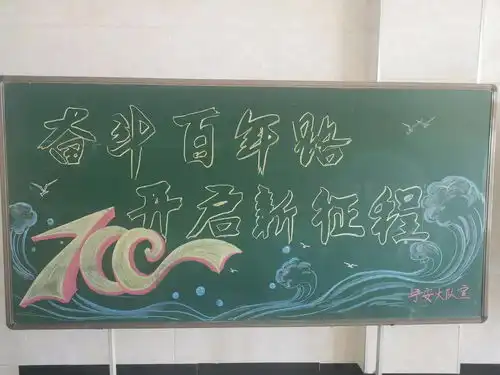 奋斗百年路
开启新征程
100
平安大队宣